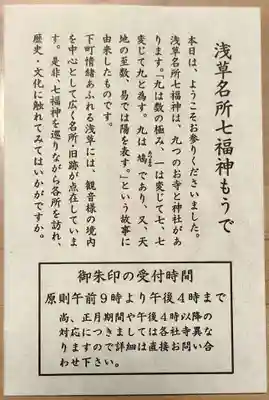 浅草名所七福神もうで
本日は、ようこそお参りくださいました。
浅草名所七福神は、九つのお寺と神社があ
ります。「九は数の極み、一は変じて七、七
変じて九と為す。九は鳩であり、又、天
地の至数、易では陽を表す。」という故事に
由来したものです。
下町情緒あふれる浅草には、観音様の境内
を中心として広く名所・旧跡が点在していま
す。是非、七福神を巡りながら各所を訪れ、
歴史・文化に触れてみてはいかがですか。
御朱印の受付時間
原則午前9時より午後4時まで
尚、正月期間や午後4時以降の
対応につきましては各社寺異な
りますので詳細は直接お問い合
わせ下さい。